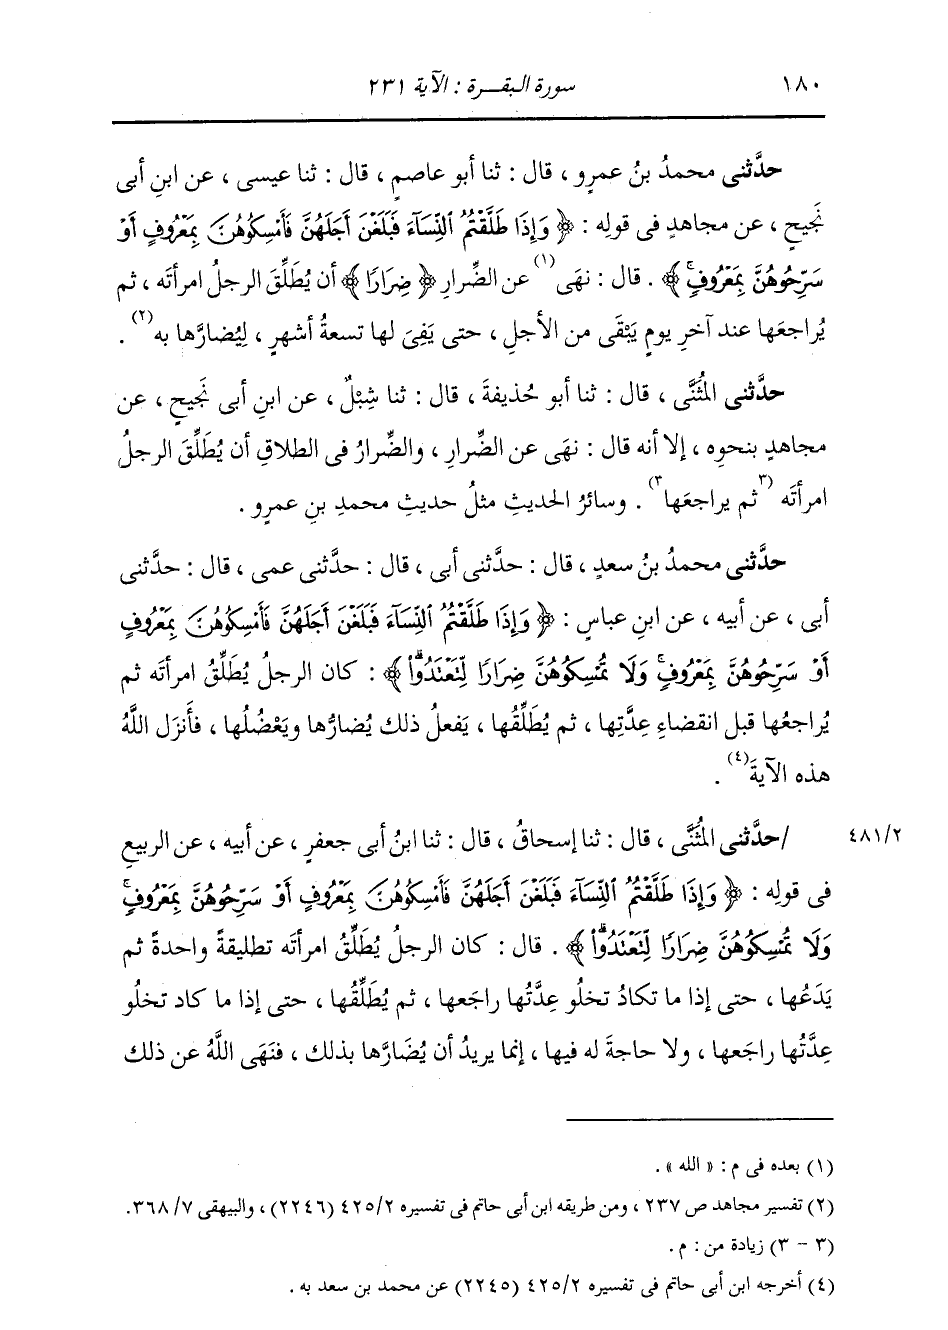 ١٨٠ سورة البقـــرة : الآية ٢٣١
حدَّثنى محمدُ بنُ عمرٍو ، قال : ثنا أبو عاصمٍ ، قال : ثنا عيسى ، عن ابنِ أبى
نَجيحٍ ، عن مجاهدٍ فى قولِه : ﴿ وَإِذَا طَلَّقْتُمُ ٱلنِّسَآءَ فَبَلَغْنَ أَجَلَهُنَّ فَأَمْسِكُوهُنَّ بِمَعْرُوفٍ أَوْ
سَرِّحُوهُنَّ بِمَعْرُوفٍ ۚ ﴾ . قال : نهَى (١) عن الضِّرارِ ﴿ ضِرَارًا ﴾ أن يُطَلِّقَ الرجلُ امرأتَه ، ثم
يُراجعَها عند آخرِ يومٍ يَبْقَى من الأجلِ ، حتى يَفِىَ لها تسعةُ أشهرٍ ، لِيُضارَّها به (٢) .
حدَّثنى المُثَنَّى ، قال : ثنا أبو حُذيفةَ ، قال : ثنا شِبْلٌ ، عن ابنِ أبى نَجيحٍ ، عن
مجاهدٍ بنحوِه ، إلا أنه قال : نهَى عن الضِّرارِ ، والضِّرارُ فى الطلاقِ أن يُطَلِّقَ الرجلُ
امرأتَه (٣ ثم يراجعَها ٣) . وسائرُ الحديثِ مثلُ حديثِ محمدِ بنِ عمرٍو .
حدَّثنى محمدُ بنُ سعدٍ ، قال : حدَّثنى أبى ، قال : حدَّثنى عمى ، قال : حدَّثنى
أبى ، عن أبيه ، عن ابنِ عباسٍ : ﴿ وَإِذَا طَلَّقْتُمُ ٱلنِّسَآءَ فَبَلَغْنَ أَجَلَهُنَّ فَأَمْسِكُوهُنَّ بِمَعْرُوفٍ
أَوْ سَرِّحُوهُنَّ بِمَعْرُوفٍ ۚ وَلَا تُمْسِكُوهُنَّ ضِرَارًا لِّتَعْتَدُوا۟ ﴾ : كان الرجلُ يُطَلِّقُ امرأتَه ثم
يُراجعُها قبل انقضاءِ عِدَّتِها ، ثم يُطَلِّقُها ، يَفعلُ ذلك يُضارُّها ويَعْضُلُها ، فأَنزل اللَّهُ
هذه الآيةَ (٤) .
٤٨١/٢ /حدَّثنى المُثَنَّى ، قال : ثنا إسحاقُ ، قال : ثنا ابنُ أبى جعفرٍ ، عن أبيه ، عن الربيعِ
فى قولِه : ﴿ وَإِذَا طَلَّقْتُمُ ٱلنِّسَآءَ فَبَلَغْنَ أَجَلَهُنَّ فَأَمْسِكُوهُنَّ بِمَعْرُوفٍ أَوْ سَرِّحُوهُنَّ بِمَعْرُوفٍ ۚ
وَلَا تُمْسِكُوهُنَّ ضِرَارًا لِّتَعْتَدُوا۟ ﴾ . قال : كان الرجلُ يُطَلِّقُ امرأتَه تطليقةً واحدةً ثم
يَدَعُها ، حتى إذا ما تكادُ تخلُو عِدَّتُها راجَعها ، ثم يُطَلِّقُها ، حتى إذا ما كاد تخلُو
عِدَّتُها راجَعها ، ولا حاجةَ له فيها ، إنما يريدُ أن يُضَارَّها بذلك ، فنَهَى اللَّهُ عن ذلك
(١) بعده فى م : « الله » .
(٢) تفسير مجاهد ص ٢٣٧ ، ومن طريقه ابن أبى حاتم فى تفسيره ٤٢٥/٢ (٢٢٤٦) ، والبيهقى ٣٦٨/٧.
(٣ - ٣) زيادة من : م .
(٤) أخرجه ابن أبى حاتم فى تفسيره ٤٢٥/٢ (٢٢٤٥) عن محمد بن سعد به .